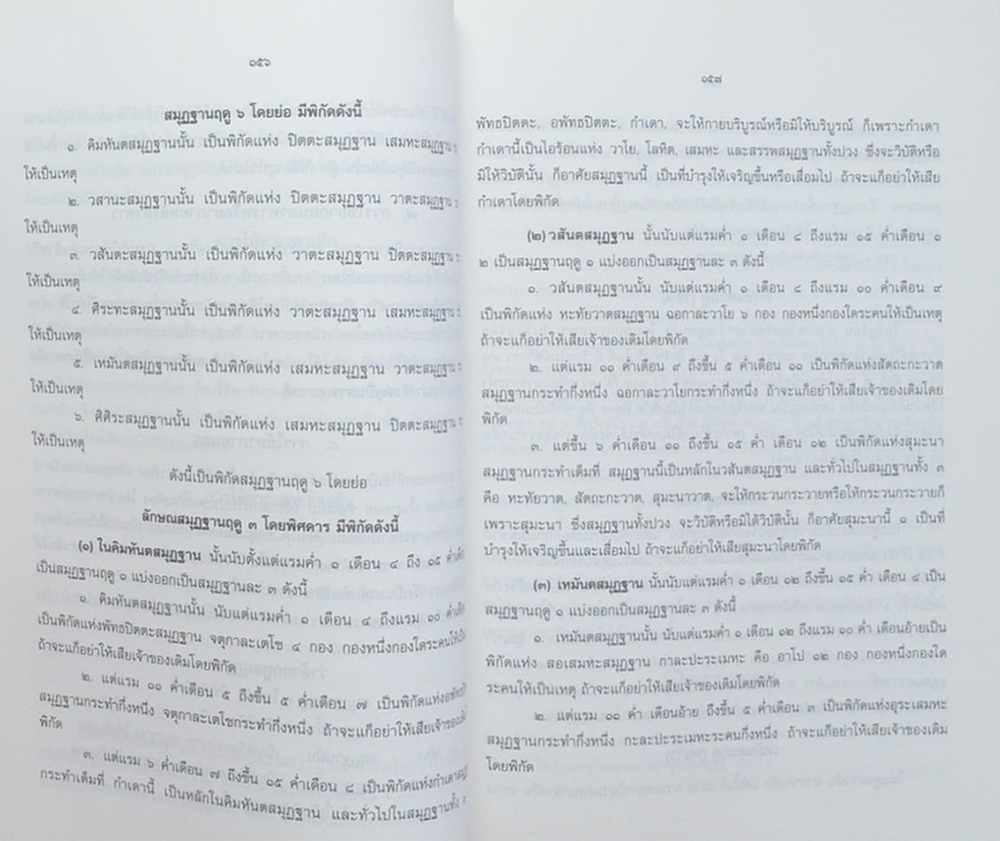 ๑๕๖
สมุฏฐานฤดู ๖ โดยย่อ มีพิกัดดังนี้
๑. คิมหันตสมุฏฐานนั้น เป็นพิกัดแห่ง ปิตตะสมุฏฐาน เสมหะสมุฏฐาน
ให้เป็นเหตุ
๒. วสานะสมุฏฐานนั้น เป็นพิกัดแห่ง ปิตตะสมุฏฐาน วาตะสมุฏฐาน
ให้เป็นเหตุ
๓. วสันตะสมุฏฐานนั้น เป็นพิกัดแห่ง วาตะสมุฏฐาน ปิตตะสมุฏฐาน
ให้เป็นเหตุ
๔. ศิระทะสมุฏฐานนั้น เป็นพิกัดแห่ง วาตะสมุฏฐาน เสมหะสมุฏฐาน
ให้เป็นเหตุ
๕. เหมันตสมุฏฐานนั้น เป็นพิกัดแห่ง เสมหะสมุฏฐาน วาตะสมุฏฐาน
ให้เป็นเหตุ
๖. ศิศิระสมุฏฐานนั้น เป็นพิกัดแห่ง เสมหะสมุฏฐาน ปิตตะสมุฏฐาน
ให้เป็นเหตุ
ดังนี้เป็นพิกัดสมุฏฐานฤดู ๖ โดยย่อ
ลักษณสมุฏฐานฤดู ๓ โดยพิศดาร มีพิกัดดังนี้
(๑) ในคิมหันตสมุฏฐาน นั้นนับตั้งแต่แรมค่ำ ๑ เดือน ๔ ถึง ๑๕ ค่ำ
เป็นสมุฏฐานฤดู ๑ แบ่งออกเป็นสมุฏฐานละ ๓ ดังนี้
๑. คิมหันตสมุฏฐานนั้น นับแต่แรมค่ำ ๑ เดือน ๔ ถึงแรม ๑๐ ค่ำ
เป็นพิกัดแห่งพัทธปิตตะสมุฏฐาน จตุกาละเตโช ๔ กอง กองหนึ่งกองใดระคนให้
ถ้าจะแก้อย่าให้เสียเจ้าของเดิมโดยพิกัด
๒. แต่แรม ๑๑ ค่ำเดือน ๕ ถึงขึ้น ๕ ค่ำเดือน ๗ เป็นพิกัดแห่ง
สมุฏฐานกระทำกึ่งหนึ่ง จตุกาละเตโชกระทำกึ่งหนึ่ง ถ้าจะแก้อย่าให้เสียเจ้าของเดิม
พิกัด
๓. แต่แรม ๖ ค่ำเดือน ๗ ถึงขึ้น ๑๕ ค่ำเดือน ๘ เป็นพิกัดแห่งกำเดา
กระทำเต็มที่ กำเดานี้ เป็นหลักในคิมหันตสมุฏฐาน และทั่วไปในสมุฏฐานทั้ง ๓
๑๕๗
พัทธปิตตะ, อพัทธปิตตะ, กำเดา, จะให้กายบริบูรณ์หรือมิให้บริบูรณ์ ก็เพราะกำเดา
กำเดานี้เป็นไอร้อนแห่ง วาโย, โลหิต, เสมหะ และสรรพสมุฏฐานทั้งปวง ซึ่งจะวิบัติหรือ
มิให้วิบัตินั้น ก็อาศัยสมุฏฐานนี้ เป็นที่บำรุงให้เจริญขึ้นหรือเสื่อมไป ถ้าจะแก้อย่าให้เสีย
กำเดาโดยพิกัด
(๒) วสันตสมุฏฐาน นั้นนับแต่แรมค่ำ ๑ เดือน ๘ ถึงแรม ๑๕ ค่ำเดือน ๑
๒ เป็นสมุฏฐานฤดู ๑ แบ่งออกเป็นสมุฏฐานละ ๓ ดังนี้
๑. วสันตสมุฏฐานนั้น นับแต่แรมค่ำ ๑ เดือน ๘ ถึงแรม ๑๐ ค่ำเดือน ๙
เป็นพิกัดแห่ง หะทัยวาตสมุฏฐาน ฉอกาละวาโย ๖ กอง กองหนึ่งกองใดระคนให้เป็นเหตุ
ถ้าจะแก้อย่าให้เสียเจ้าของเดิมโดยพิกัด
๒. แต่แรม ๑๑ ค่ำเดือน ๙ ถึงขึ้น ๕ ค่ำเดือน ๑๑ เป็นพิกัดแห่งสัตถะกะวาต
สมุฏฐานกระทำกึ่งหนึ่ง ฉอกาละวาโยกระทำกึ่งหนึ่ง ถ้าจะแก้อย่าให้เสียเจ้าของเดิมโดย
พิกัด
๓. แต่ขึ้น ๖ ค่ำเดือน ๑๑ ถึงขึ้น ๑๕ ค่ำ เดือน ๑๒ เป็นพิกัดแห่งสุมะนา
สมุฏฐานกระทำเต็มที่ สมุฏฐานนี้เป็นหลักในวสันตสมุฏฐาน และทั่วไปในสมุฏฐานทั้ง ๓
คือ หะทัยวาต, สัตถะกะวาต, สุมะนาวาต, จะให้กระวนกระวายหรือให้กระวนกระวายก็
เพราะสุมะนา ซึ่งสมุฏฐานทั้งปวง จะวิบัติหรือมิได้วิบัตินั้น ก็อาศัยสุมะนานี้ ๑ เป็นที่
บำรุงให้เจริญขึ้นและเสื่อมไป ถ้าจะแก้อย่าให้เสียสุมะนาโดยพิกัด
(๓) เหมันตสมุฏฐาน นั้นนับแต่แรมค่ำ ๑ เดือน ๑๒ ถึงขึ้น ๑๕ ค่ำ เดือน ๔ เป็น
สมุฏฐานฤดู ๑ แบ่งออกเป็นสมุฏฐานละ ๓ ดังนี้
๑. เหมันตสมุฏฐานนั้น นับแต่แรมค่ำ ๑ เดือน ๑๒ ถึงแรม ๑๐ ค่ำ เดือนอ้ายเป็น
พิกัดแห่ง สอเสมหะสมุฏฐาน กาละปะระเมหะ คือ อาโป ๑๒ กอง กองหนึ่งกองใด
ระคนให้เป็นเหตุ ถ้าจะแก้อย่าให้เสียเจ้าของเดิมโดยพิกัด
๒. แต่แรม ๑๑ ค่ำ เดือนอ้าย ถึงขึ้น ๕ ค่ำเดือน ๓ เป็นพิกัดแห่งอุระเสมหะ
สมุฏฐานกระทำกึ่งหนึ่ง กะละปะระเมหะระคนกึ่งหนึ่ง ถ้าจะแก้อย่าให้เสียเจ้าของเดิม
โดยพิกัด